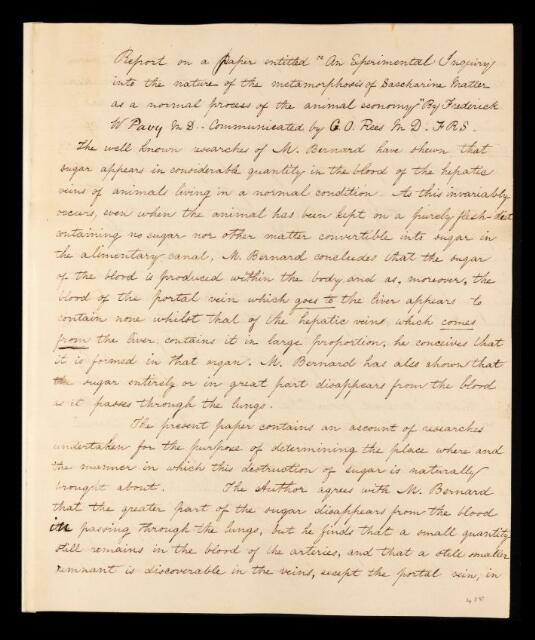 Report on a paper entitled "An Experimental Inquiry
into the nature of the metamorphosis of Saccharine Matter
as a normal process of the animal economy" By Frederick
W Pavy M D.. Communicated by G. O. Rees M D. F R S.
The well known researches of M. Bernard have shewn that
sugar appears in considerable quantity in the blood of the hepatic
veins of animals living in a normal condition. As this invariably
occurs, even when the animal has been kept on a purely flesh-diet
containing no sugar nor other matter convertible into sugar in
the alimentary canal, M. Bernard concludes that the sugar
of the blood is produced within the body, and as, moreover, the
blood of the portal vein which goes to the liver appears to
contain none whilst that of the hepatic veins which comes
from the liver contains it in large proportion, he conceives that
it is formed in that organ. M. Bernard has also shown that
the sugar entirely or in great part disappears from the blood
as it passes through the lungs.
The present paper contains an account of researches
undertaken for the purpose of determining the place where and
the manner in which this destruction of sugar is naturally
brought about. The Author agrees with M. Bernard
that the greater part of the sugar disappears from the blood
in passing through the lungs, but he finds that a small quantity
still remains in the blood of the arteries, and that a still smaller
remnant is discoverable in the veins, except the portal vein, in